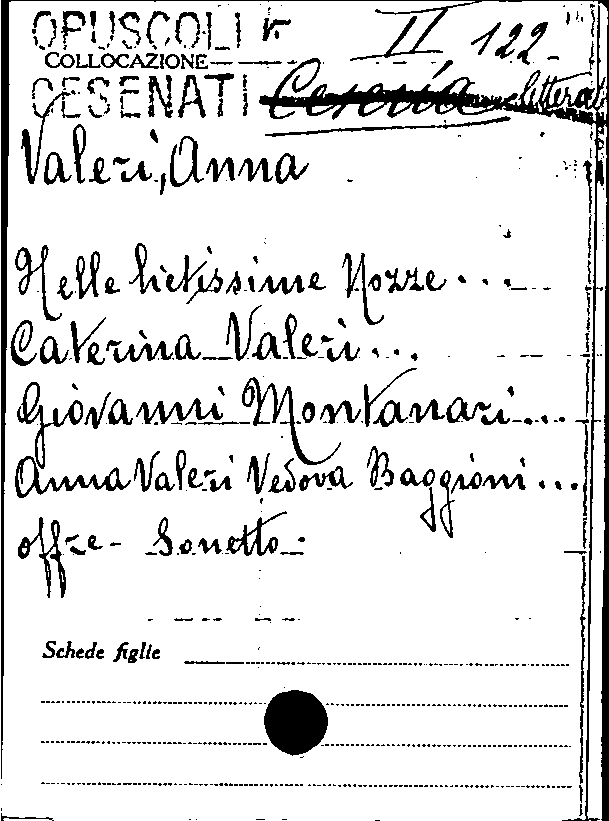 OPUSCOLI V. II 122-
COLLOCAZIONE
CESENATI Cesena
Valeri, Anna
Nelle lietissime Nozze...
Caterina Valeri...
Giovanni Montanari...
Anna Valeri Vedova Baggioni...
offre- Sonetto.
Schede figlie